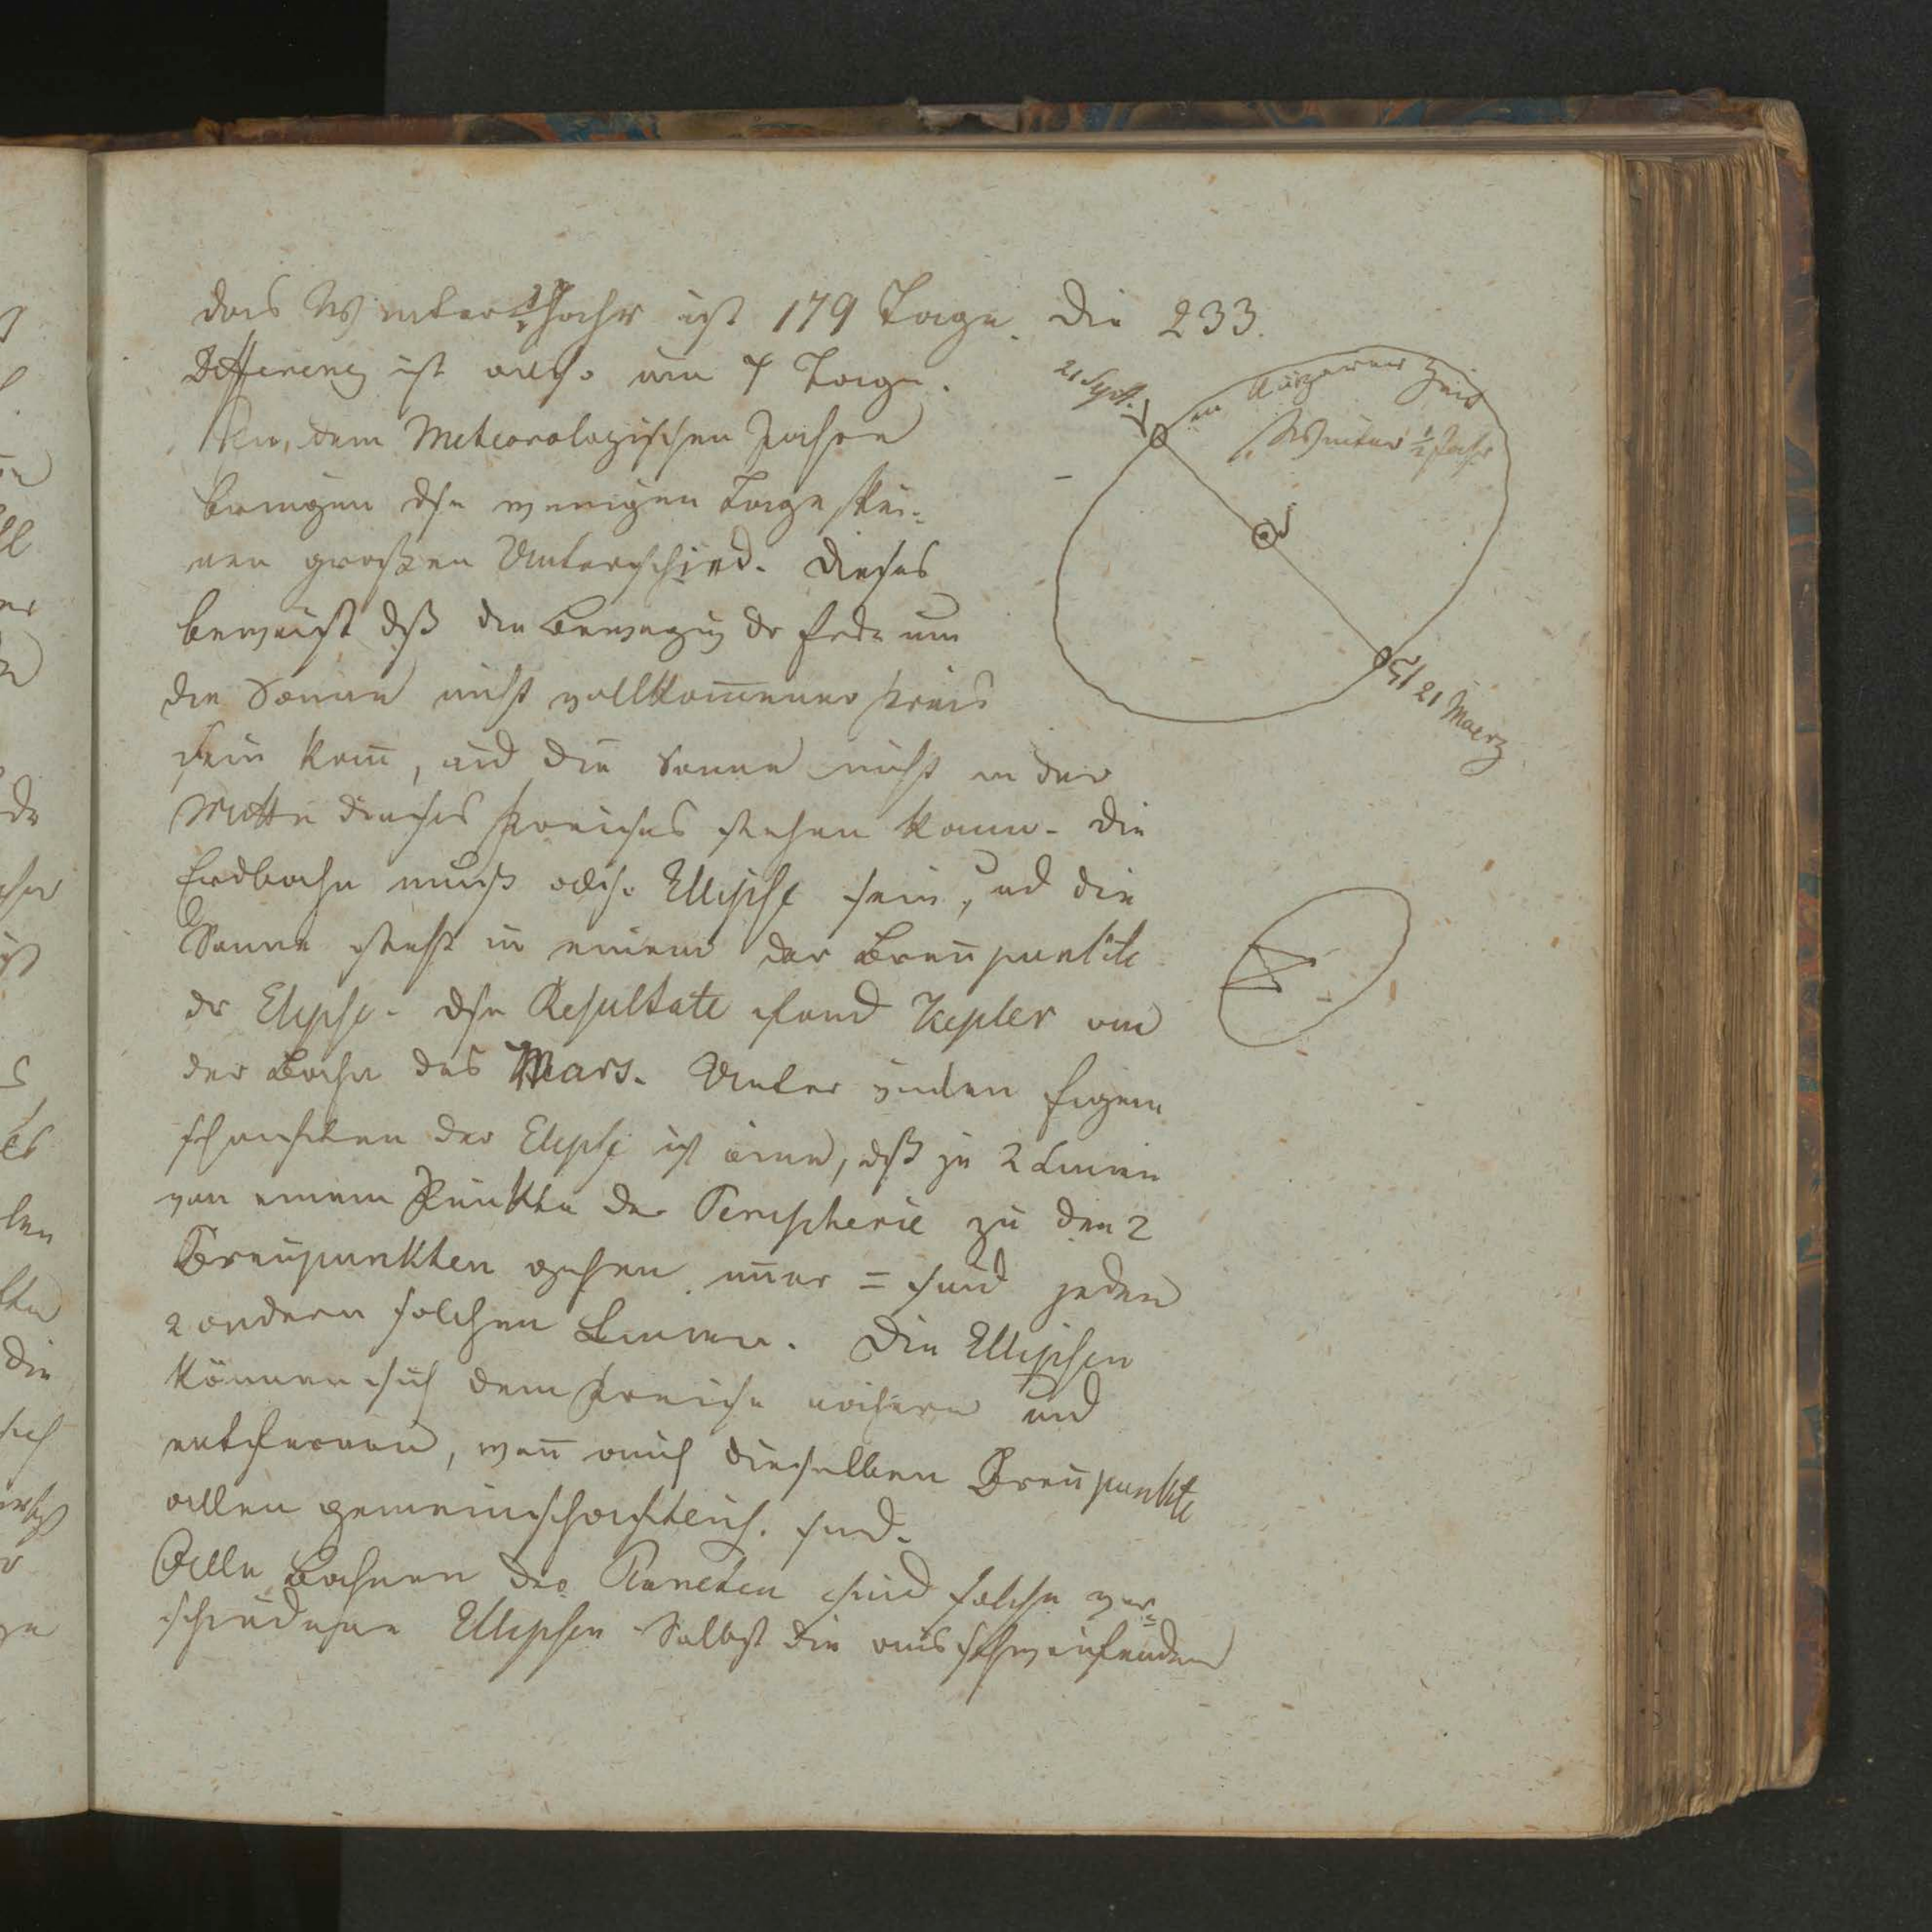 das Winter ½ Jahr ist 179 Tage. Die 233.
Differenz ist also um 7 Tage.
In dem Meteorologischen Jahre
bringen dse wenigen Tage kei-
nen großen Unterschied. Dieses
beweist dß die Bewegug dr Erde um
die Sonne nicht vollkom̄ener Kreis
sein kan̄, und die Sonne nicht in der
Mitte dieses Kreises stehen kann. Die
Erdbahn muß also Ellipse sein, und die
Sonne steht in einem der Bren̄punkte
dr Elipse. Dse Resultate fand Kepler an
der Bahn des Mars. Unter vielen Eigen
schaften der Elipse ist eine, dß je 2 Linien
von einem Punkte der Peripherie zu den 2
Bren̄punkten gehen im̄er = sind jeden
2 andern solchen Linien. Die Ellipsen
können sich dem Kreise nähern und
entfernen, wen̄ auch dieselben Bren̄punkte
allen gemeinschaftlich sind.
Alle Bahnen der Planeten sind solche ver-
schiedene Ellipsen Selbst die ausschweifenden
21 Sept.
in kürzerer Zeit
Winter ½ Jahr
21 Maerz